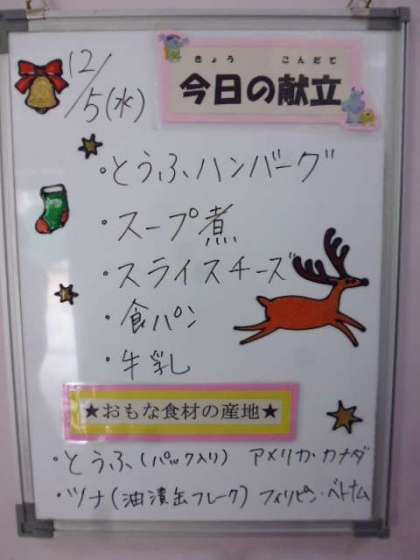 12/5(水)
きょう こんだて
今日の献立
・とうふハンバーグ
・スープ煮
・スライスチーズ
・食パン
・牛乳
★おもな食材の産地★
・とうふ(パック入り) アメリカ・カナダ
・ツナ(油漬缶フレーク) フィリピン・ベトナム